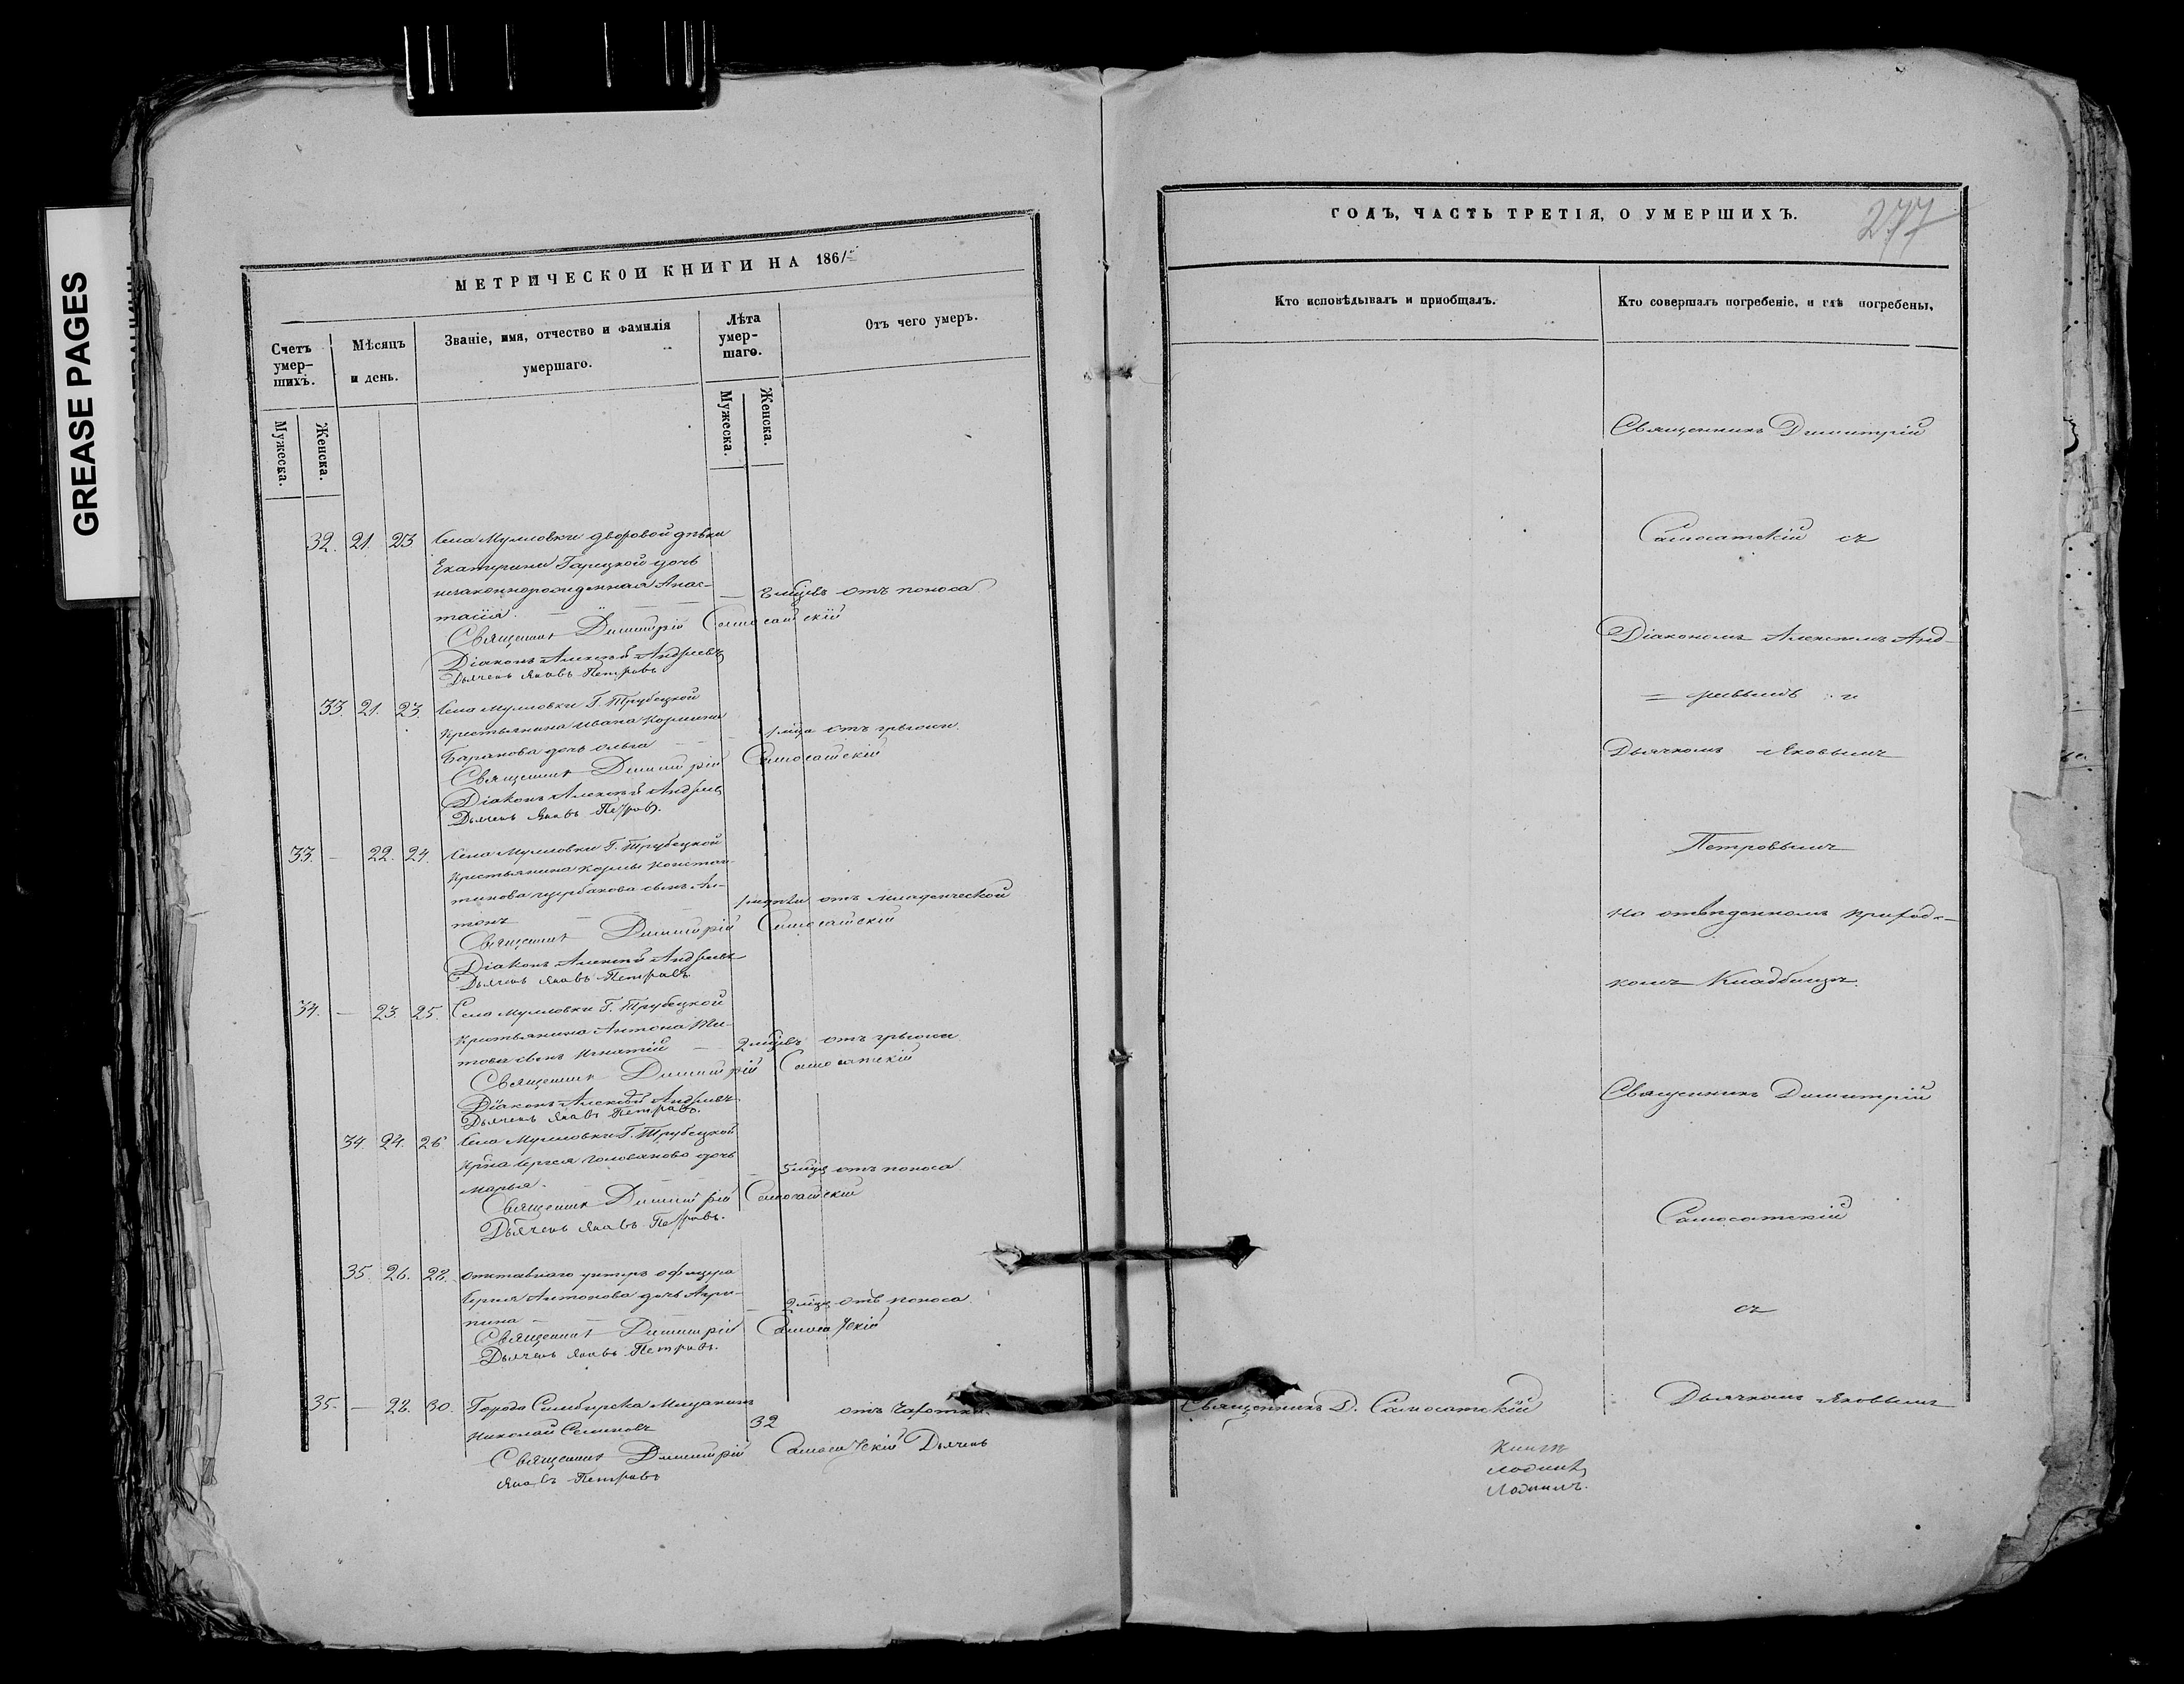 GREASE PAGES
МЕТРИЧЕСКОЙ КНИГИ НА 186
Счетъ умер-
шихъ.
Мѣсяцъ
и день.
Званіе, имя, отчество и фамилія
умершаго.
Лѣта
умер-
шаго.
Отъ чего умеръ.
Мужеска.
Женска.
Мужеска.
Женска.
32. 21. 23 Села Мулловки дворовой дѣвки
Екатерины Гарецкой дочь
незаконнорожденная Анас-
тасія. — мцевъ отъ поноса
Священникъ Димитрій Самосатскій
Діаконъ Алексѣй Андреевъ
Дьячекъ Яковъ Петровъ
33. 21. 23. Села Мулловки Г. Трубецкой
крестьянина Ивана Козмина
Баранова дочь Ольга — 1 мца отъ грыжи.
Священникъ Димитрій Самосатскій
Діаконъ Алексѣй Андреевъ
Дьячекъ Яковъ Петровъ.
33. — 22. 24. Села Мулловки Г. Трубецкой
крестьянина Козмы Констан-
тинова Щербакова сынъ Ан-
тонъ — 1 недѣли отъ младенческой
Священникъ Димитрій Самосатскій
Діаконъ Алексѣй Андреевъ
Дьячекъ Яковъ Петровъ
34. — 23. 25. Села Мулловки Г. Трубецкой
крестьянина Антона Ти-
това сынъ Игнатій — 2 мцевъ отъ грыжи
Священникъ Димитрій Самосатскій
Діаконъ Алексѣй Андреевъ
Дьячекъ Яковъ Петровъ.
34 24. 26 Села Мулловки Г. Трубецкой
крна Сергея Голованова дочь
Марья. — 5 мцв отъ поноса
Священникъ Димитрій Самосатскій
Дьячекъ Яковъ Петровъ.
35. 26. 28. отставнаго унтеръ офицера
Сергея Антонова дочь Агри-
пина — 2 мцв отъ поноса.
Священникъ Димитрій Самосатскій
Дьячекъ Яковъ Петровъ.
35. — 28. 30. Города Симбирска Мещанинъ
Николай Семеновъ 32 отъ чахотки
Священникъ Димитрій Самосатскій Дьячекъ
Яковъ Петровъ
ГОДЪ, ЧАСТЬ ТРЕТІЯ, О УМЕРШИХЪ.
277
Кто исповѣдывалъ и приобщалъ.
Кто совершалъ погребеніе, и гдѣ погребены.
Священникъ Димитрій
Самосатскій съ
Діакономъ Алексѣемъ Анд-
= реевымъ и
Дьячкомъ Яковымъ
Петровымъ
на отведенномъ приходс-
комъ Кладбищѣ.
Священникъ Димитрій
Самосатскій
съ
Священникъ Д. Самосатскій
Дьячкомъ Яковымъ